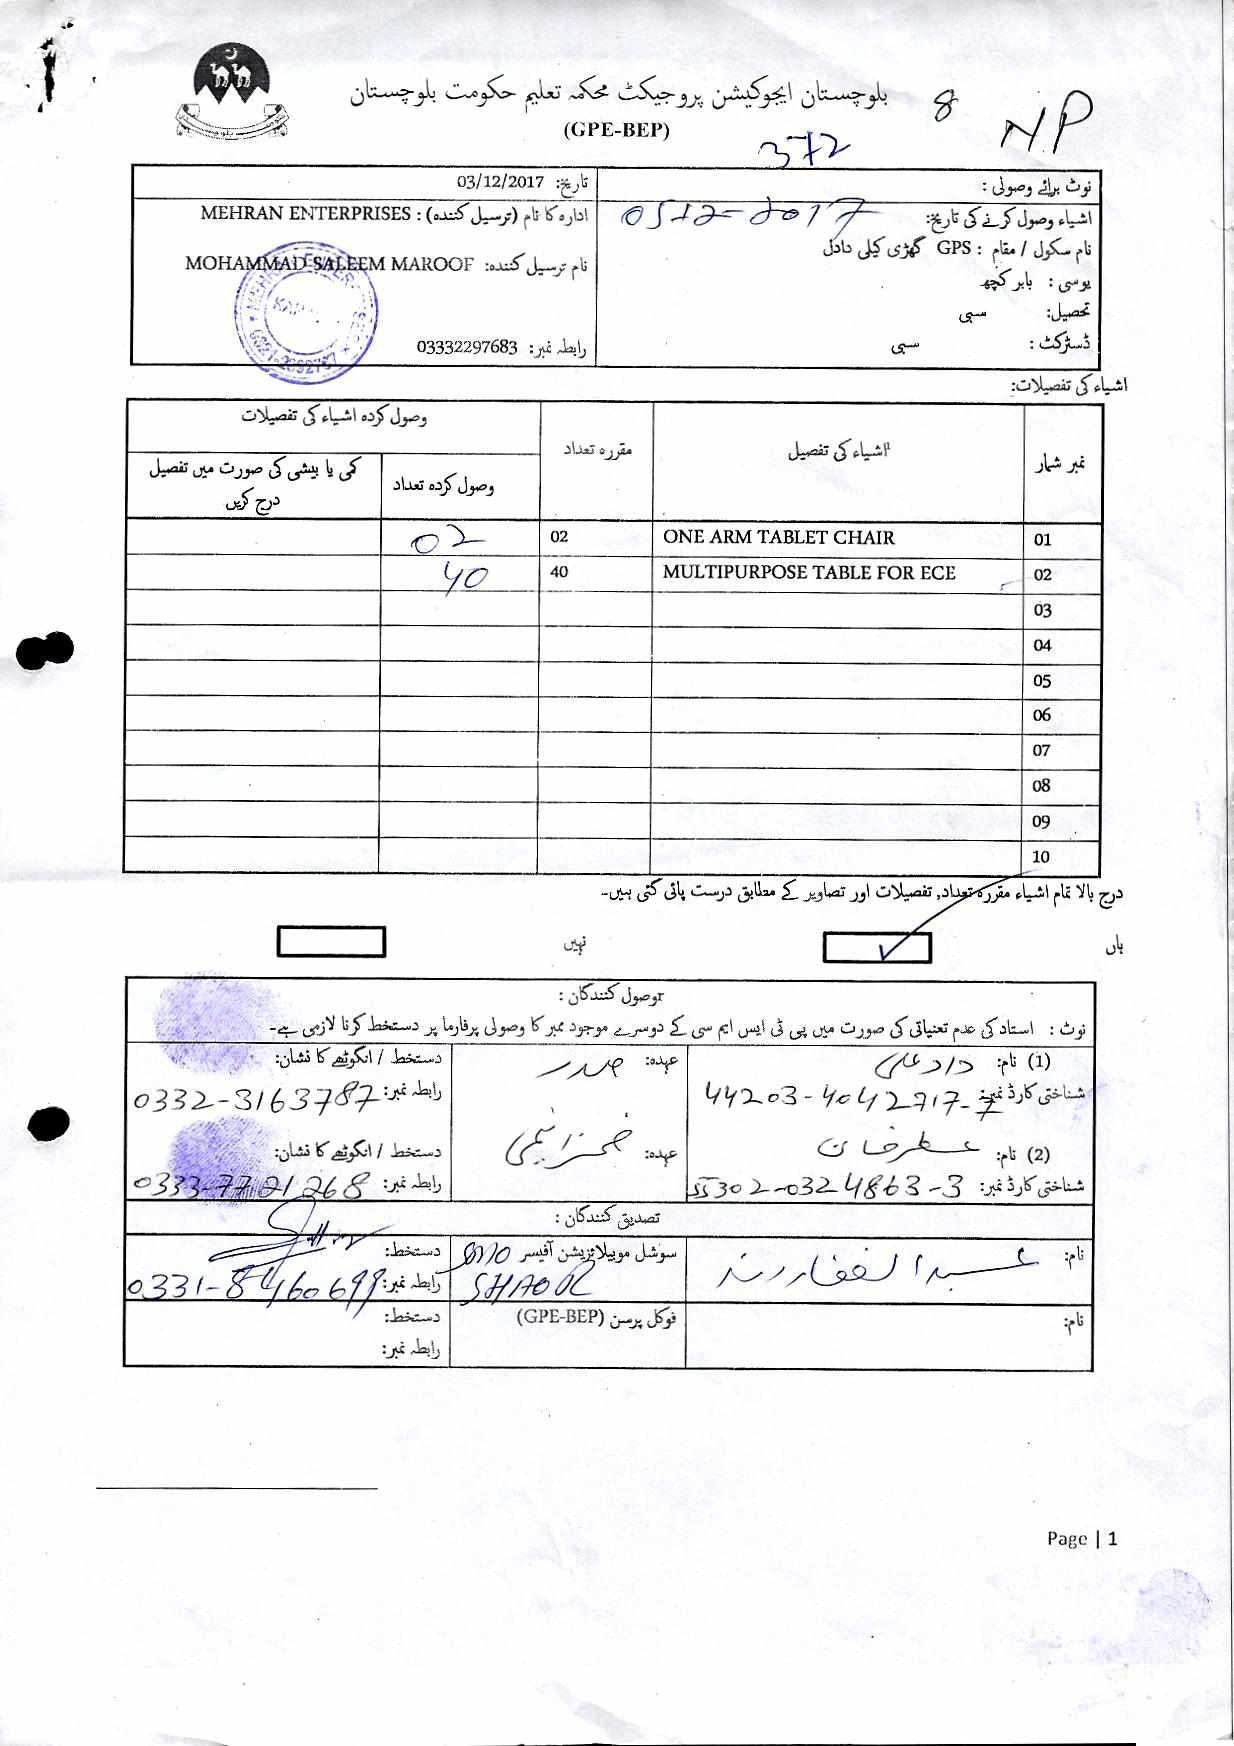 بلوچستان ایجوکیشن پروجیکٹ محکمہ تعلیم حکومت بلوچستان
(GPE-BEP)
8
N.P
372
نوٹ برائے وصولی :
اشیاء وصول کرنے کی تاریخ: 05-12-2017
نام سکول / مقام : GPS گھڑی کیلی دادل
یوسی : بابر کچھ
تحصیل: سبی
ڈسٹرکٹ : سبی
تاریخ: 03/12/2017
ادارہ کا نام (ترسیل کنندہ) : MEHRAN ENTERPRISES
نام ترسیل کنندہ: MOHAMMAD SALEEM MAROOF
رابطہ نمبر: 03332297683
اشیاء کی تفصیلات:
نمبر شمار اشیاء کی تفصیل مقررہ تعداد وصول کردہ اشیاء کی تفصیلات
وصول کردہ تعداد کمی یا بیشی کی صورت میں تفصیل درج کریں
01 ONE ARM TABLET CHAIR 02 02
02 MULTIPURPOSE TABLE FOR ECE 40 40
03
04
05
06
07
08
09
10
درج بالا تمام اشیاء مقررہ تعداد, تفصیلات اور تصاویر کے مطابق درست پائی گئی ہیں۔
ہاں ✓ نہیں
وصول کنندگان :
نوٹ : استاد کی عدم تعیناتی کی صورت میں پی ٹی ایس ایم سی کے دوسرے موجود ممبر کا وصولی پرفارما پر دستخط کرنا لازمی ہے۔
(1) نام: داد علی عہدہ: صدر دستخط / انگوٹھے کا نشان:
شناختی کارڈ نمبر: 44203-4042717-7 رابطہ نمبر: 0332-3163787
(2) نام: عطر خان عہدہ: دستخط / انگوٹھے کا نشان:
شناختی کارڈ نمبر: 55302-0324863-3 رابطہ نمبر: 0333-7721268
تصدیق کنندگان :
نام: عبدالغفار رند سوشل موبیلائزیشن آفیسر SMO دستخط:
رابطہ نمبر: 0331-8460699
نام: فوکل پرسن (GPE-BEP) دستخط:
رابطہ نمبر:
Page | 1